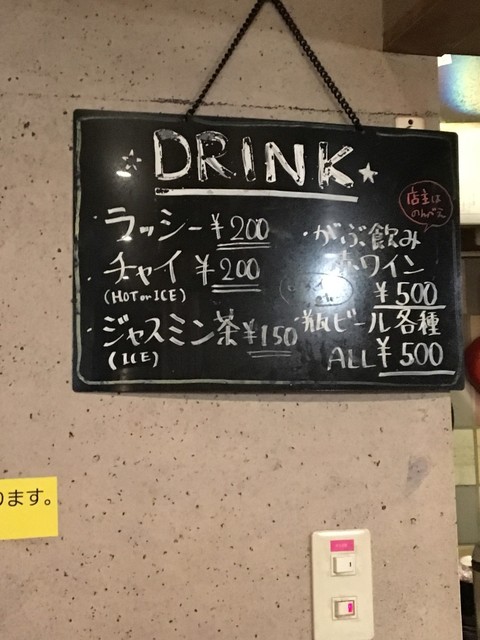 DRINK
ラッシー ¥200
チャイ ¥200
(HOT or ICE)
ジャスミン茶 ¥150
(ICE)
店主は
のんべえ
がぶ飲み
赤ワイン
¥500
瓶ビール各種
ALL ¥500
ります。